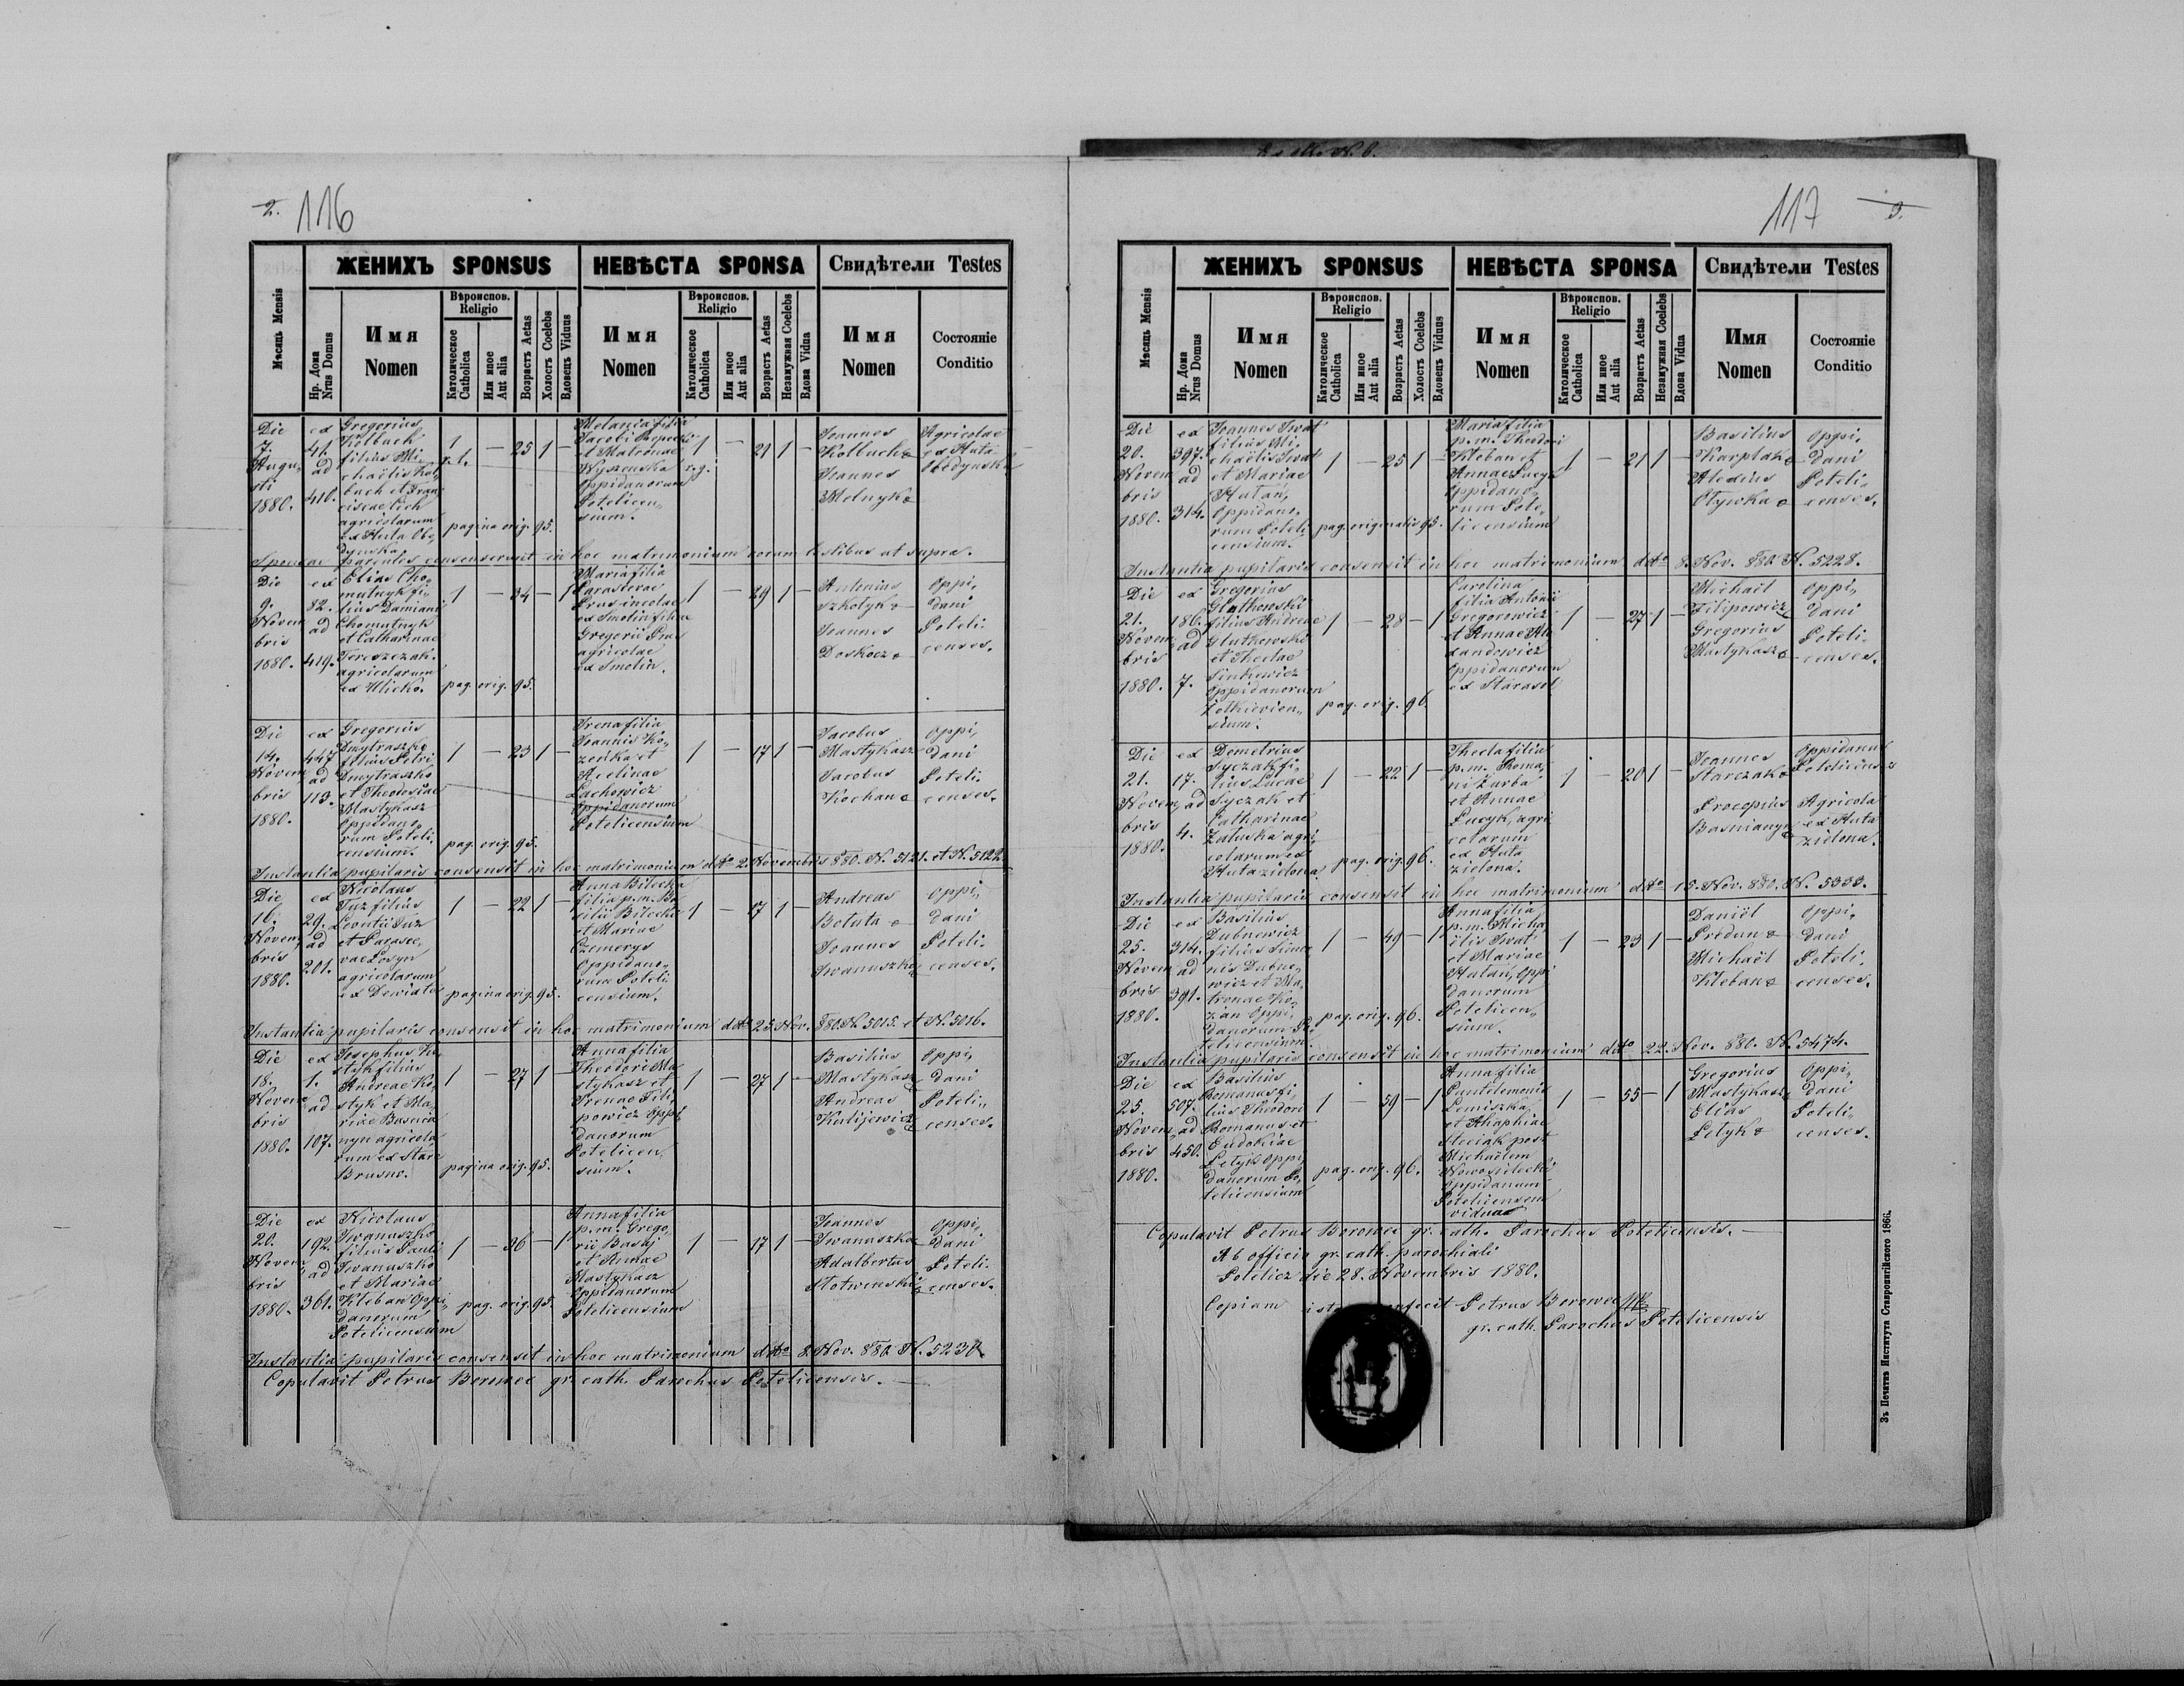 2. 116
ЖЕНИХЪ SPONSUS НЕВѢСТА SPONSA Свидѣтели Testes
Мѣсяць Mensis
Нр. Дома Nrus Domus
Имя Nomen
Вѣроиспов. Religio
Католическое Catholica
Или иное Aut alia
Возрастъ Aetas
Холостъ Coelebs
Вдовецъ Viduus
Имя Nomen
Вѣроиспов. Religio
Католическое Catholica
Или иное Aut alia
Возрастъ Aetas
Незамужная Coelebs
Вдова Vidua
Имя Nomen
Состояніе Conditio
Die 7. Augusti 1880.
ex 41. ad 410.
Gregorius
Kolbuch
filius Mi-
chaëlis Kol-
buch et Fran-
ciscae Lich
agricolarum
ex Huta Obe-
dynska
1 r.l. — 25 1 —
pagina orig. 95.
Melania filia
Jacobi
et Matronae
Wyszenska
Oppidanorum
Potelicen-
sium.
1 r.g. — 21 1 —
Joannes
Kolbuch
Joannes
Melnyk
Agricolae
ex Huta
Obedynska
Sponsae parentes consenserunt in hoc matrimonium coram testibus ut supra.
Die 9. Novembris 1880.
ex 82. ad 419.
Elias Cho-
mutnyk fi-
lius Damiani
Chomutnyk
et Catharinae
Tereszczak
agricolarum
ex Ulicko.
1 — 34 — 1
pag. orig. 95.
Maria filia
Parascevae
Prus incolae
ex Smolin filiae
Gregorii Prus
agricolae
ex Smolin.
1 — 29 1 —
Antonius
Szkolyk
Joannes
Doskocz
Oppi-
dani
Poteli-
censes.
Die 14. Novembris 1880.
ex 447 ad 113.
Gregorius
Dmytraszko
filius Petri
Dmytraszko
et Theodosiae
Mastykasz
Oppidano-
rum Poteli-
censium.
1 — 23 1 —
pag. orig. 95.
Irena filia
Joannis Ko-
zenka et
Acelinae
Lachowicz
Oppidanorum
Potelicensium
1 — 17 1 —
Jacobus
Mastykasz
Jacobus
Kochan
Oppi-
dani
Poteli-
censes.
Instantia pupilaris consensit in hoc matrimonium ddto 2. Novembris 880. N. 5121. et N. 5122.
Die 16. Novembris 1880.
ex 29. ad 201.
Nicolaus
Tuz filius
Leontii Tuz
et Parasce-
vae Losyn
agricolarum
ex Dewiate
1 — 22 1 —
pagina orig. 95.
Anna Bilecka
filia p.m. Ba-
silii Bilecki
et Mariae
Czemerys
Oppidano-
rum Poteli-
censium.
1 — 17 1 —
Andreas
Botuta
Joannes
Iwanuszko
Oppi-
dani
Poteli-
censes.
Instantia pupilaris consensit in hoc matrimonium ddto 25. Nov. 880. N. 5015. et N. 5016.
Die 18. Novembris 1880.
ex 1. ad 107.
Josephus Ko-
styk filius
Andreae Ko-
styk et Ma-
riae Basnia-
nyn agricola-
rum ex Stare
Brusno.
1 — 27 1 —
pagina orig. 95.
Anna filia
Theodori Ma-
stykasz et
Irenae Fili-
powicz Oppi-
danorum
Potelicen-
sium.
1 — 27 1 —
Basilius
Mastykasz
Andreas
Kulijewicz
Oppi-
dani
Poteli-
censes.
Die 20. Novembris 1880.
ex 192. ad 361.
Nicolaus
Iwanuszko
filius Pauli
Iwanuszko
et Mariae
Kleban Oppi-
danorum
Potelicensium
1 — 36 — 1
pag. orig. 95.
Anna filia
p.m. Grego-
rii Basaj
et Annae
Mastykasz
Oppidanorum
Potelicensium
1 — 17 1 —
Joannes
Iwanuszko
Adalbertus
Slotwinski
Oppi-
dani
Poteli-
censes.
Instantia pupilaris consensit in hoc matrimonium ddto 8. Nov. 880. N. 5230.
Copulavit Petrus Borowec gr. cath. Parochus Potelicensis. —
117 3.
ЖЕНИХЪ SPONSUS НЕВѢСТА SPONSA Свидѣтели Testes
Мѣсяць Mensis
Нр. Дома Nrus Domus
Имя Nomen
Вѣроиспов. Religio
Католическое Catholica
Или иное Aut alia
Возрастъ Aetas
Холостъ Coelebs
Вдовецъ Viduus
Имя Nomen
Вѣроиспов. Religio
Католическое Catholica
Или иное Aut alia
Возрастъ Aetas
Незамужная Coelebs
Вдова Vidua
Имя Nomen
Состояніе Conditio
Die 20. Novembris 1880.
ex 397. ad 314.
Joannes Iwat
filius Mi-
chaëlis Iwat
et Mariae
Hutan,
Oppidano-
rum Poteli-
censium.
1 — 25 1 —
pag. originalis 95.
Maria filia
p.m. Theodori
Kleban et
Annae Lucyk
Oppidano-
rum Pote-
licensium
1 — 21 1 —
Basilius
Karplak
Alexius
Otycka
Oppi-
dani
Poteli-
censes.
Instantia pupilaris consensit in hoc matrimonium ddto 8. Nov. 880. N. 5228.
Die 21. Novembris 1880.
ex 186. ad 7.
Gregorius
Glutkowski
filius Andreae
Glutkowski
et Theclae
Sinkewicz
Oppidanorum
Zolkievien-
sium.
1 — 28 — 1
pag. orig. 96.
Carolina
filia Antonii
Gregorowicz
et Annae Ale-
xandowicz
Oppidanorum
ex Starasol
1 — 27 1 —
Michaël
Filipowicz
Gregorius
Mastykasz
Oppi-
dani
Poteli-
censes.
Die 21. Novembris 1880.
ex 17. ad 4.
Demetrius
Syczak fi-
lius Lucae
Syczak et
Catharinae
Zaluska agri-
colarum ex
Huta zielona
1 — 22 1 —
pag. orig. 96.
Thecla filia
p.m. Roma-
ni Zurba
et Annae
Lucyk, agri-
colarum
ex Huta
zielona.
1 — 20 1 —
Joannes
Starczak
Procopius
Basnianyn
Oppidanus
Potelicensis
Agricola
ex Huta
zielona.
Instantia pupilaris consensit in hoc matrimonium ddto 15. Nov. 880. N. 5333.
Die 25. Novembris 1880.
ex 314. ad 391.
Basilius
Dubnewicz
filius Simeo-
nis Dubne-
wicz et Ma-
tronae Ko-
zan Oppi-
danorum Po-
telicensium.
1 — 49 — 1
pag. orig. 96.
Anna filia
p.m. Micha-
ëlis Iwat
et Mariae
Hutan, Oppi-
danorum
Potelicen-
sium.
1 — 23 1 —
Daniël
Predun
Michaël
Kleban
Oppi-
dani
Poteli-
censes.
Instantia pupilaris consensit in hoc matrimonium ddto 22. Nov. 880. N. 5474.
Die 25. Novembris 1880.
ex 507. ad 450.
Basilius
Romanus fi-
lius Theodori
Romanus et
Eudokiae
Letyk Oppi-
danorum Po-
telicensium
1 — 59 — 1
pag. orig. 96.
Anna filia
Pantelemonis
Lemiszka
et Ahaphiae
Steciak post
Michaëlem
Nowosielecki
Oppidanum
Potelicensem
vidua
1 — 55 — 1
Gregorius
Mastykasz
Elias
Letyk
Oppi-
dani
Poteli-
censes.
Copulavit Petrus Borowec gr. cath. Parochus Potelicensis. —
Ab officio gr. cath. parochiali
Potelicz die 28. Novembris 1880.
Copiam confecit Petrus Borowec
gr. cath. Parochus Potelicensis
Зъ Печатнѣ Института Ставропигійского 1866.